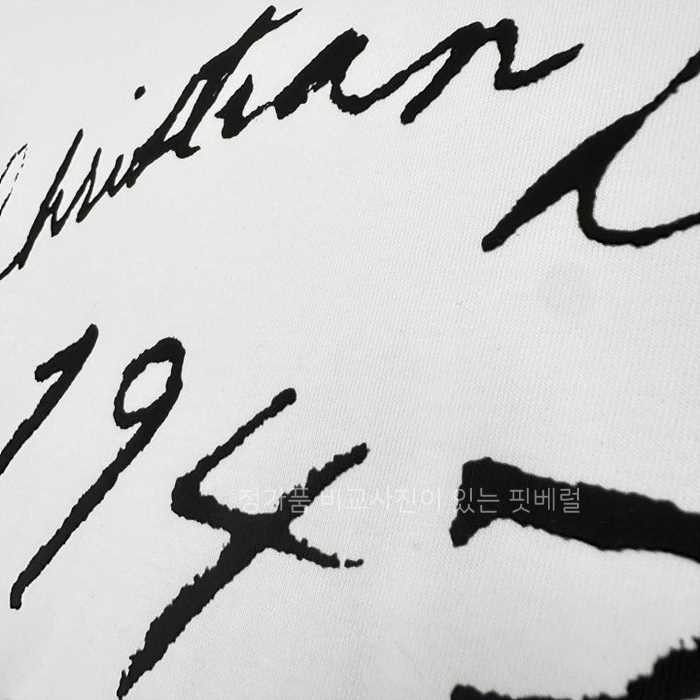 Christian
194
정가품 비교사진이 있는 핏베럴